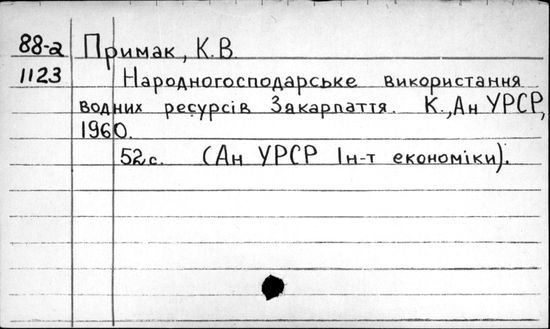 88-а Примак, К.В.
1123 Народногосподарське використання
водних ресурсів Закарпаття. К., Ан УРСР,
1960.
52с. (Ан УРСР Ін-т економіки).